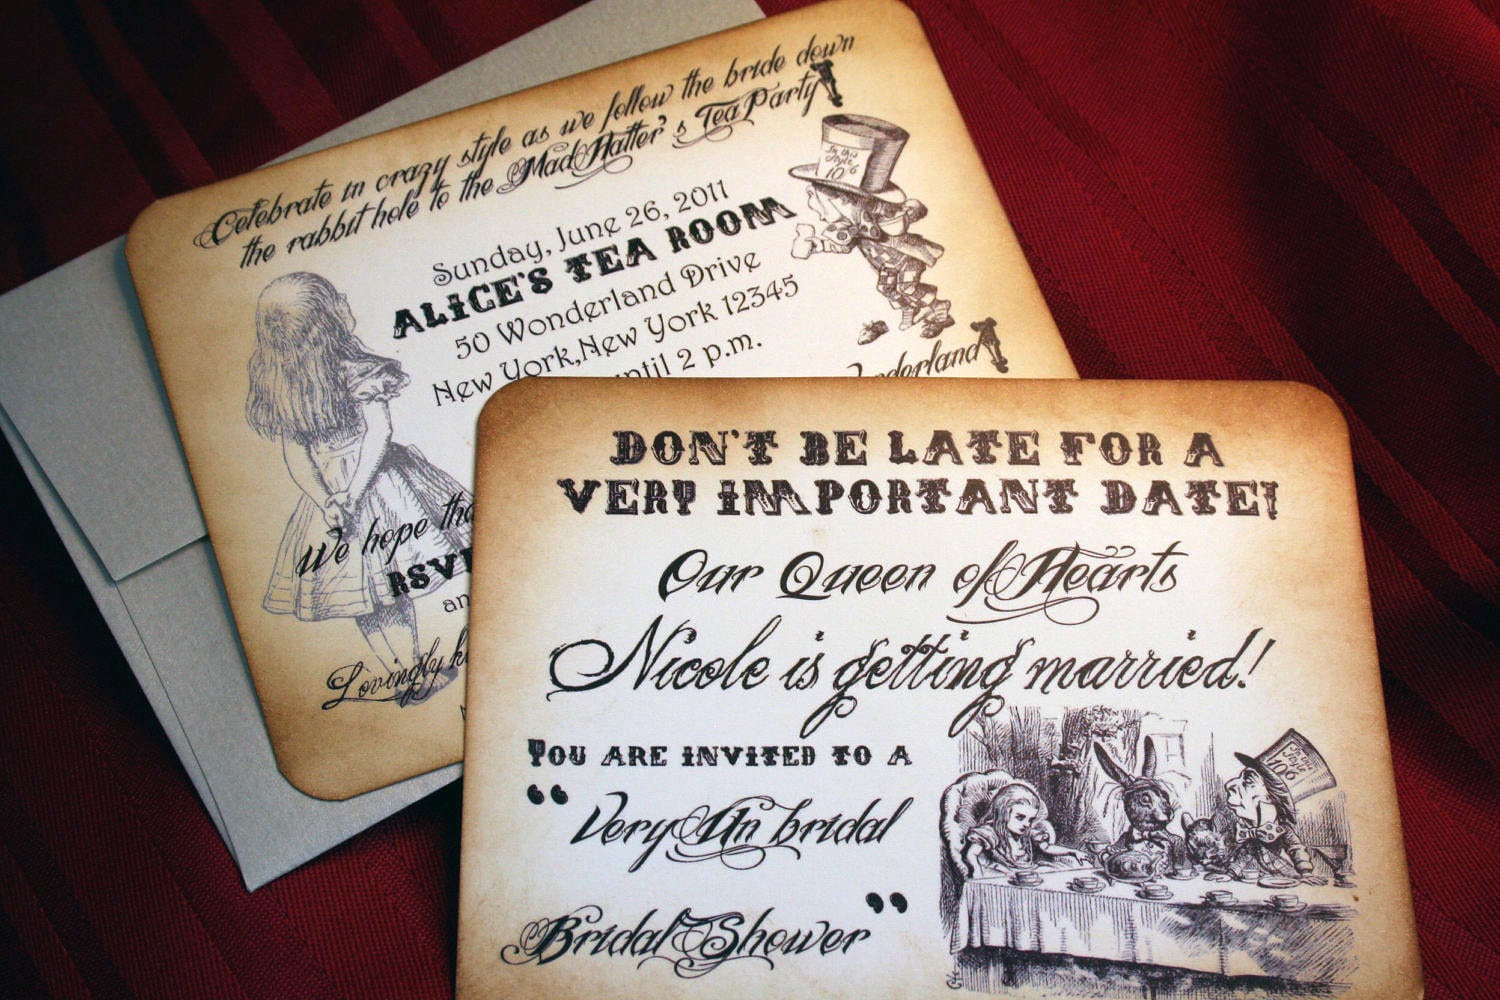 Celebrate in crazy style as we follow the bride down
the rabbit hole to the Mad Hatter's Tea Party
In this
Style
10/6
Sunday, June 26, 2011
ALICE'S TEA ROOM
50 Wonderland Drive
New York, New York 12345
until 2 p.m.
We hope tha
RSV
an
Lovingly h
DON'T BE LATE FOR A
VERY IMPORTANT DATE!
Our Queen of Hearts
Nicole is getting married!
YOU ARE INVITED TO A
"Very Un bridal
Bridal Shower"
In this
Style
10/6